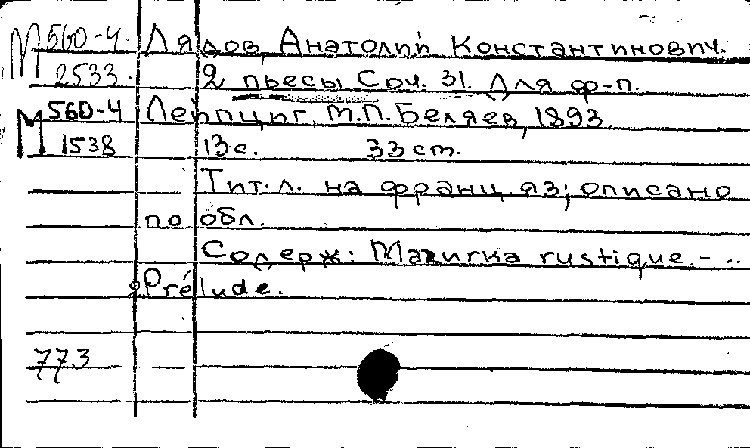 М 560-4 Лядов, Анатолий Константинович.
2533. 2 пьесы Соч. 31. Для ф-п.
М 560-4 Лейпциг, М.П. Беляев, 1893
1538 13с. 33 cm.
Тит. л. на франц. яз; описано
по обл.
Содерж: Мазурка rustique. - ..
Prélude.
773